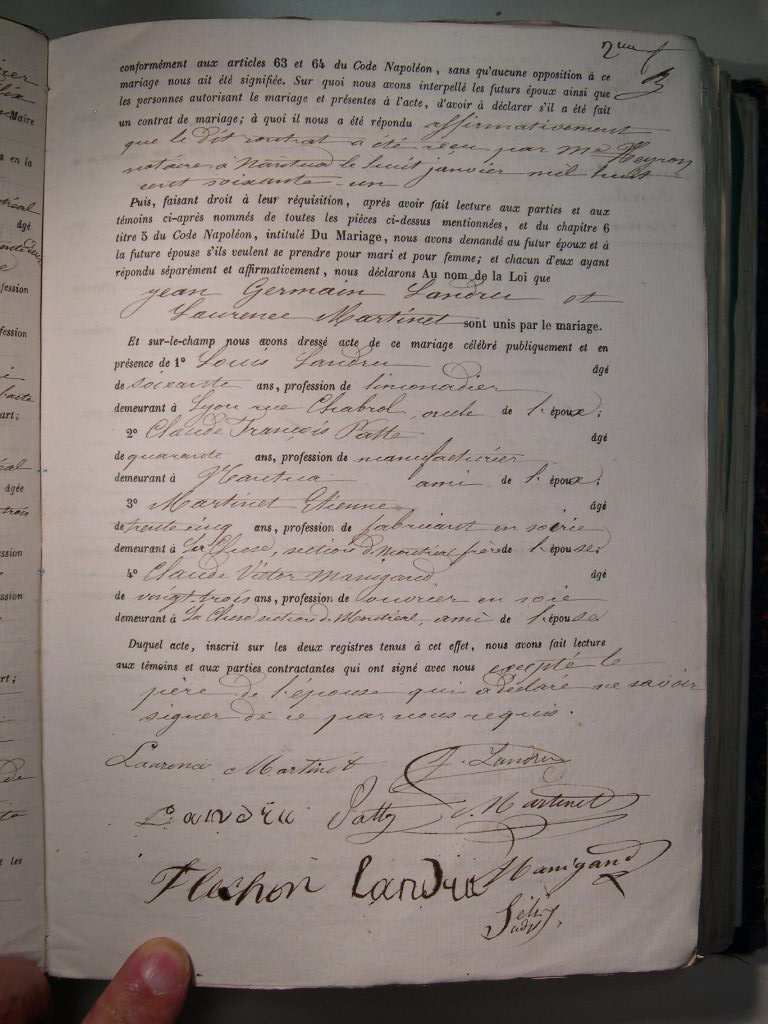 2me
conformément aux articles 63 et 64 du Code Napoléon, sans qu'aucune opposition à ce
mariage nous ait été signifiée. Sur quoi nous avons interpellé les futurs époux ainsi que
les personnes autorisant le mariage et présentes à l'acte, d'avoir à déclarer s'il a été fait
un contrat de mariage; à quoi il nous a été répondu affirmativement
que le dit contrat a été reçu par me
notaire à Nantua le huit janvier mil huit
cent soixante-un
Puis, faisant droit à leur réquisition, après avoir fait lecture aux parties et aux
témoins ci-après nommés de toutes les pièces ci-dessus mentionnées, et du chapitre 6
titre 5 du Code Napoléon, intitulé Du Mariage, nous avons demandé au futur époux et à
la future épouse s'ils veulent se prendre pour mari et pour femme; et chacun d'eux ayant
répondu séparément et affirmativement, nous déclarons Au nom de la Loi que
jean Germain Landru et
Laurence Martinet sont unis par le mariage.
Et sur-le-champ nous avons dressé acte de ce mariage célébré publiquement et en
présence de 1º Louis Landru âgé
de soixante ans, profession de limonadier
demeurant à Lyon rue Chabrol, oncle de l'époux;
2º Claude François Patte âgé
de quarante ans, profession de manufacturier
demeurant à Nantua ami de l'époux;
3º Martinet Etienne âgé
de trente cinq ans, profession de fabricant en soierie
demeurant à La Cluse, section de Montréal frère de l'épouse;
4º Claude Victor Manigand âgé
de vingt trois ans, profession de ouvrier en soie
demeurant à La Cluse section de Montréal, ami de l'épouse
Duquel acte, inscrit sur les deux registres tenus à cet effet, nous avons fait lecture
aux témoins et aux parties contractantes qui ont signé avec nous excepté le
père de l'épouse qui a déclaré ne savoir
signer de ce par nous requis.
Laurence Martinet J. Landru
Landru Patte Martinet
Flechon Landru Manigand